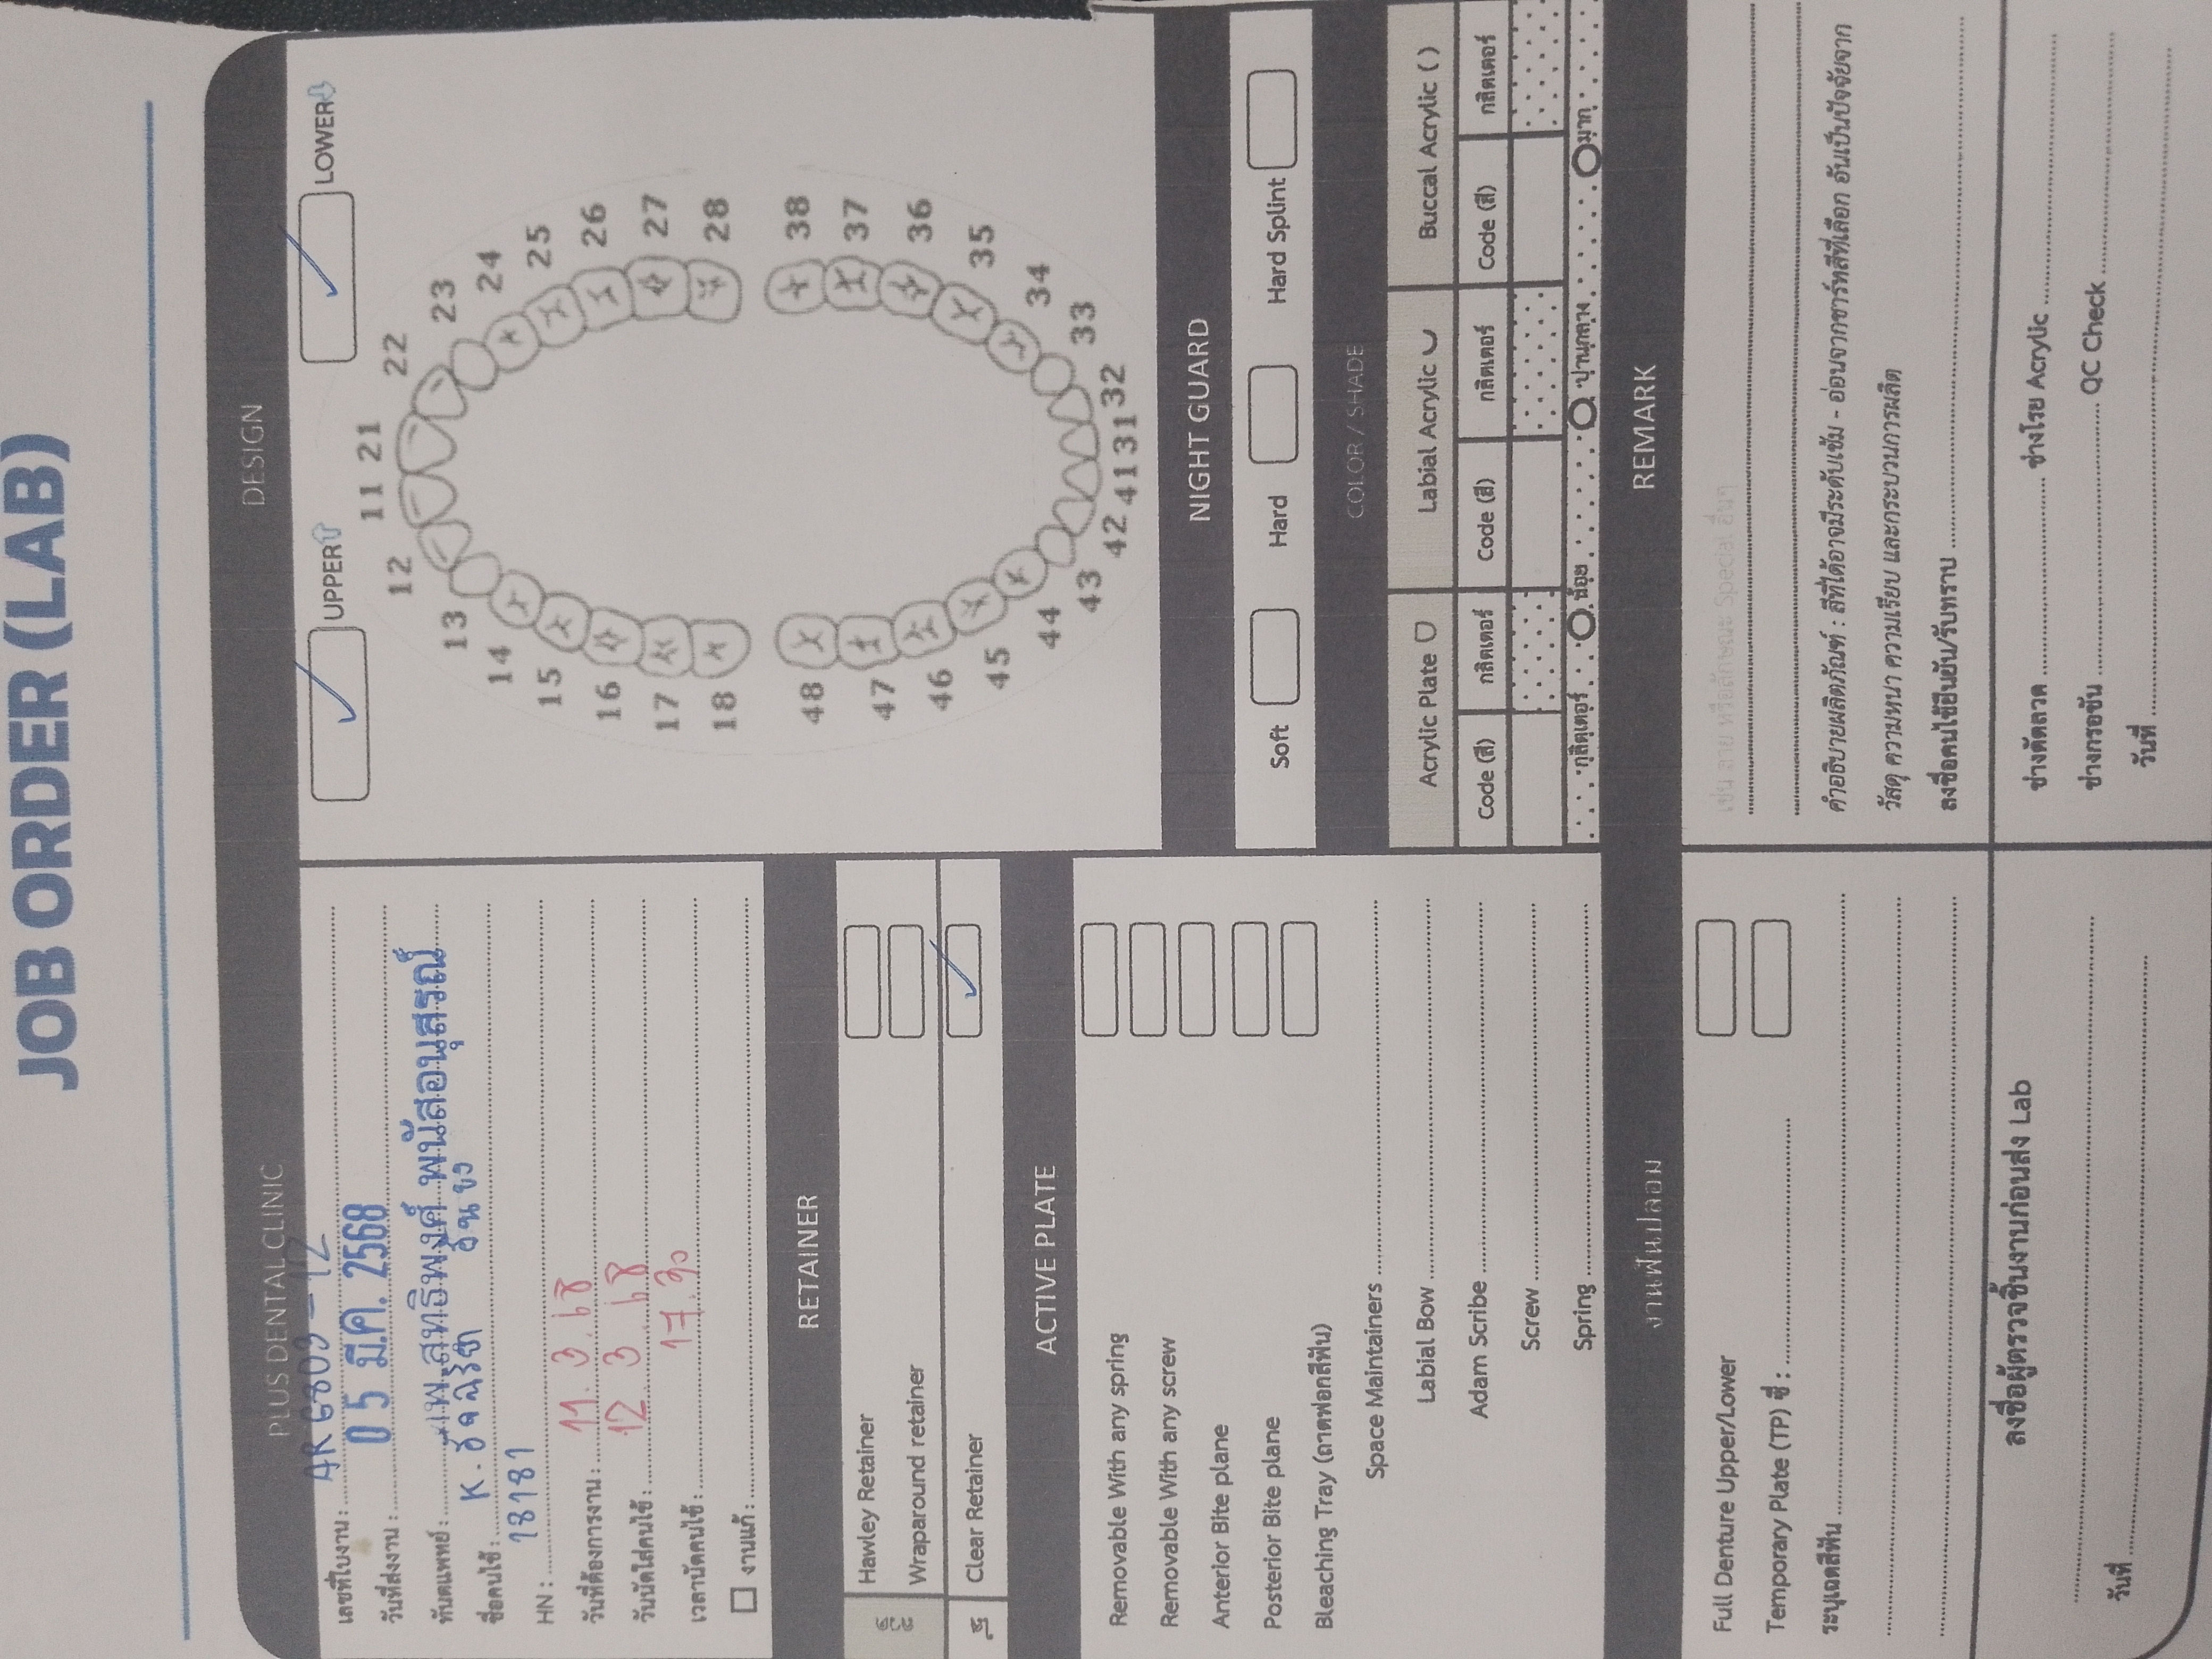 JOB ORDER (LAB)
PLUS DENTAL CLINIC
เลขที่ใบงาน : AR 6803 - 12
วันที่ส่งงาน : 0 5 มี.ค. 2568
ทันตแพทย์ : ทพ.สุทธิพงค์ พนัสอนุสรณ์
ชื่อคนไข้ : K.
HN : 18181
วันที่ต้องการงาน : 11. 3. 68
วันนัดใส่คนไข้ : 12 3. 68
เวลานัดคนไข้ : 17.30
งานแก้ :
RETAINER
Hawley Retainer
Wraparound retainer
Clear Retainer
ACTIVE PLATE
Removable With any spring
Removable With any screw
Anterior Bite plane
Posterior Bite plane
Bleaching Tray (ถาดฟอกสีฟัน)
Space Maintainers
Labial Bow
Adam Scribe
Screw
Spring
งานฟันปลอม
Full Denture Upper/Lower
Temporary Plate (TP) ซี่ :
ระบุเฉดสีฟัน
ลงชื่อผู้ตรวจชิ้นงานก่อนส่ง Lab
วันที่
DESIGN
UPPER LOWER
11 21
12 22
13 23
14 24
15 25
16 26
17 27
18 28
48 38
47 37
46 36
45 35
44 34
43 33
42 41 31 32
NIGHT GUARD
Soft Hard Hard Splint
COLOR / SHADE
Acrylic Plate Labial Acrylic Buccal Acrylic ( )
Code (สี) กลิตเตอร์ Code (สี) กลิตเตอร์ Code (สี) กลิตเตอร์
กลิตเตอร์ น้อย ปานกลาง มาก
REMARK
เช่น ลาย หรือลักษณะ Special อื่นๆ
คำอธิบายผลิตภัณฑ์ : สีที่ได้อาจมีระดับเข้ม - อ่อนจากชาร์ทสีที่เลือก อันเป็นปัจจัยจาก
วัสดุ ความหนา ความเรียบ และกระบวนการผลิต
ลงชื่อคนไข้ยืนยัน/รับทราบ
ช่างดัดลวด ช่างโรย Acrylic
ช่างกรอขัน QC Check
วันที่